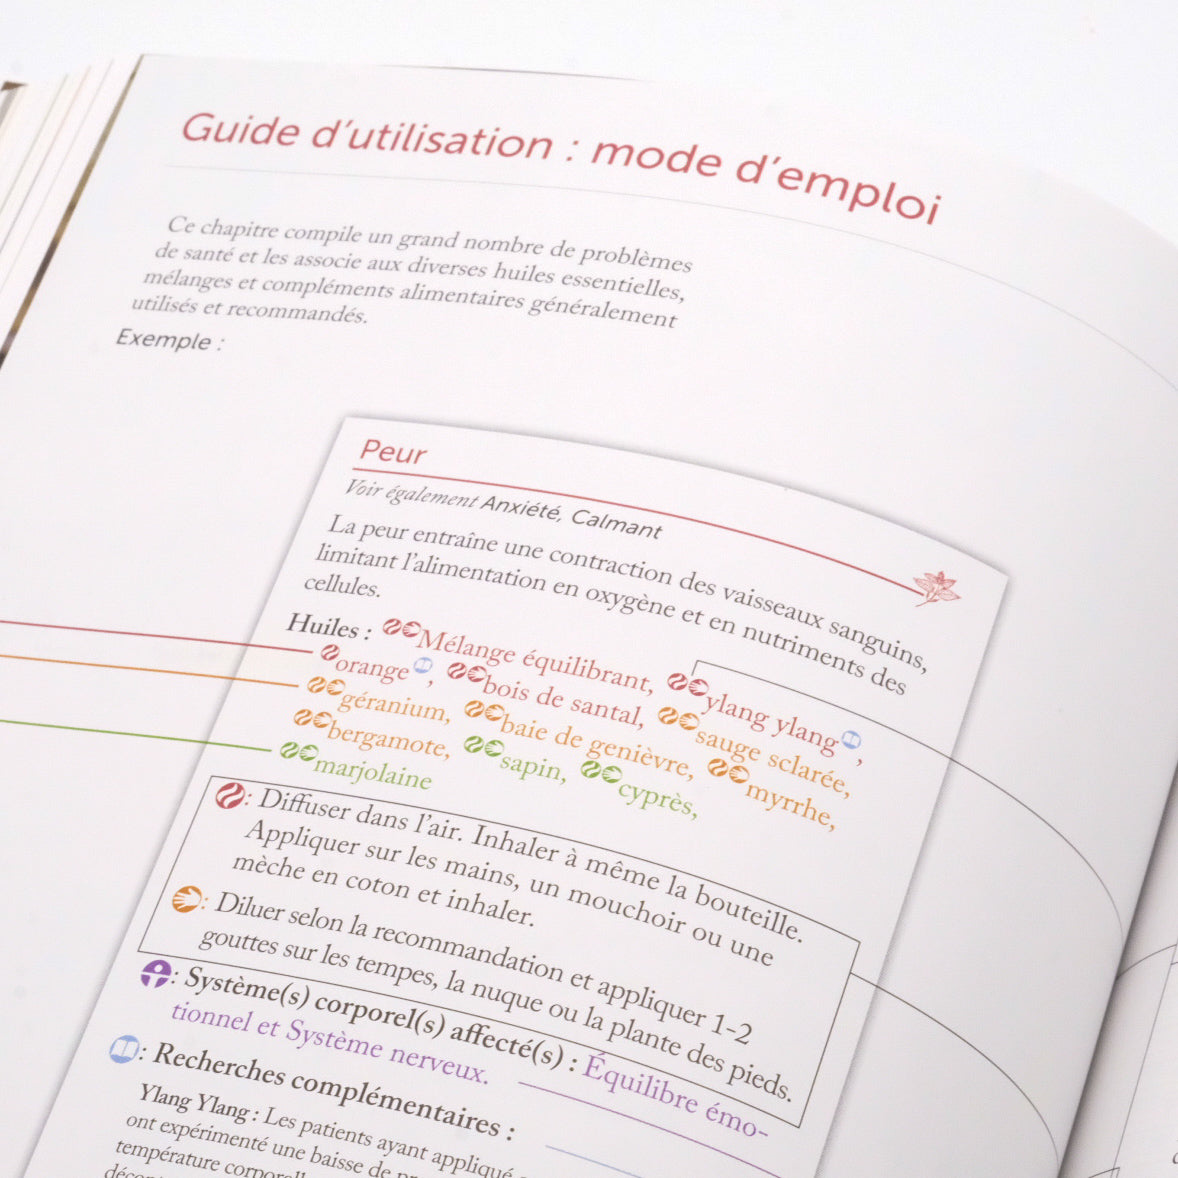 Guide d'utilisation : mode d'emploi
Ce chapitre compile un grand nombre de problèmes
de santé et les associe aux diverses huiles essentielles,
mélanges et compléments alimentaires généralement
utilisés et recommandés.
Exemple :
Peur
Voir également Anxiété, Calmant
La peur entraîne une contraction des vaisseaux sanguins,
limitant l'alimentation en oxygène et en nutriments des
cellules.
Huiles : Mélange équilibrant, ylang ylang,
orange, bois de santal, sauge sclarée,
géranium, baie de genièvre, myrrhe,
bergamote, sapin, cyprès,
marjolaine
: Diffuser dans l'air. Inhaler à même la bouteille.
Appliquer sur les mains, un mouchoir ou une
mèche en coton et inhaler.
: Diluer selon la recommandation et appliquer 1-2
gouttes sur les tempes, la nuque ou la plante des pieds.
: Système(s) corporel(s) affecté(s) : Équilibre émo-
tionnel et Système nerveux.
: Recherches complémentaires :
Ylang Ylang : Les patients ayant appliqué
ont expérimenté une baisse de
température